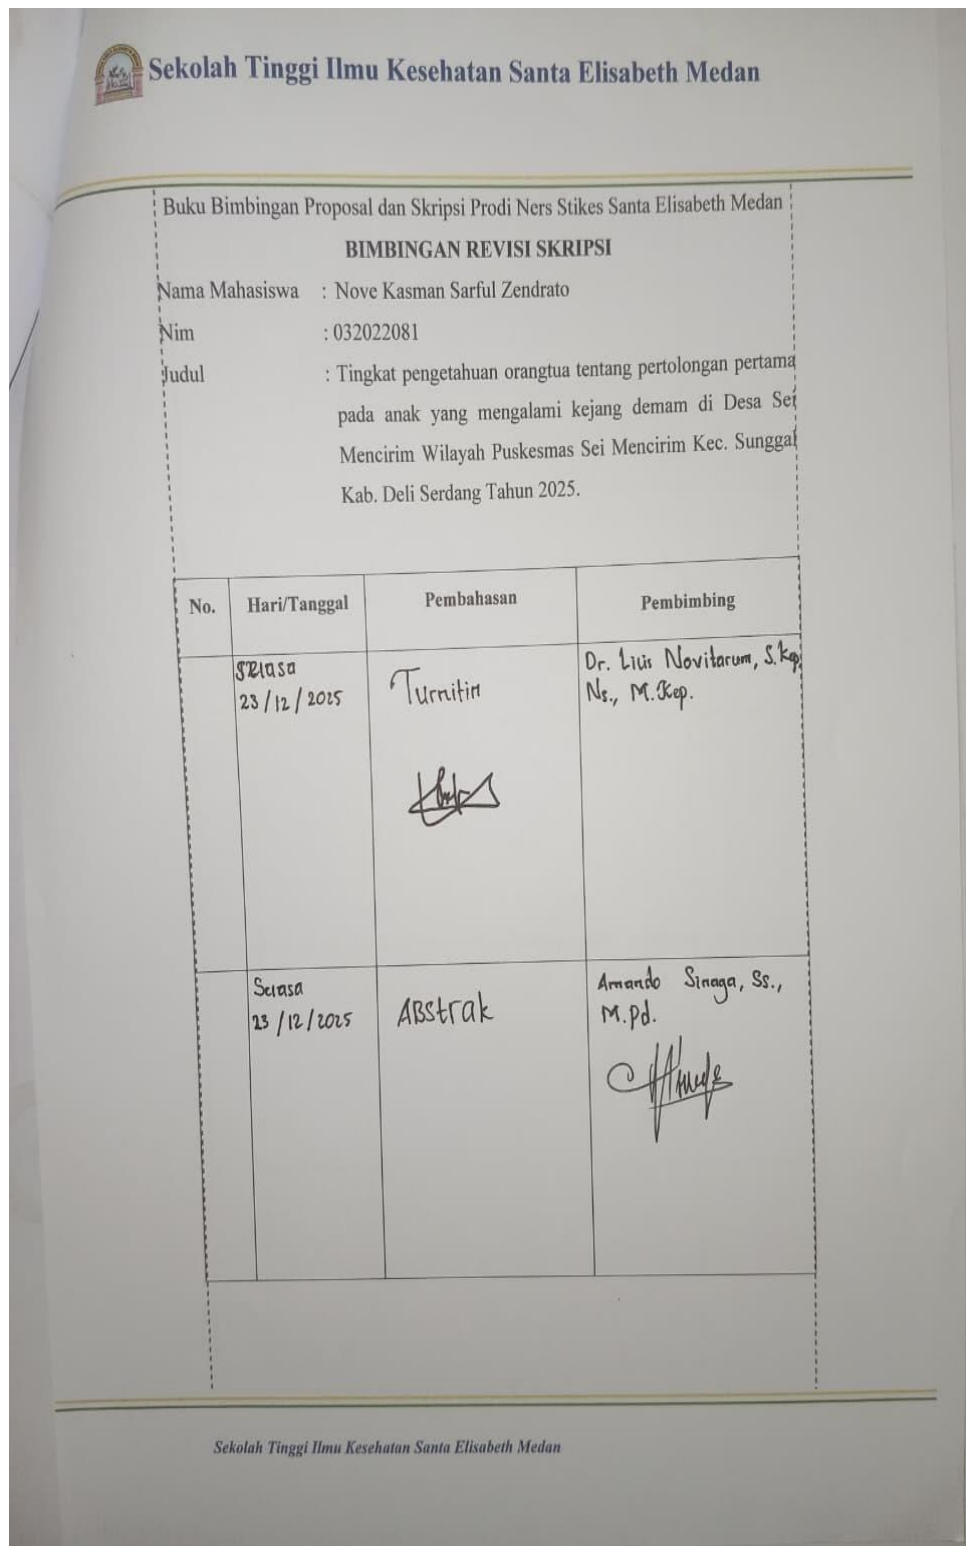 Sekolah Tinggi Ilmu Kesehatan Santa Elisabeth Medan
Buku Bimbingan Proposal dan Skripsi Prodi Ners Stikes Santa Elisabeth Medan
BIMBINGAN REVISI SKRIPSI
Nama Mahasiswa : Nove Kasman Sarful Zendrato
Nim : 032022081
Judul : Tingkat pengetahuan orangtua tentang pertolongan pertama
pada anak yang mengalami kejang demam di Desa Sei
Mencirim Wilayah Puskesmas Sei Mencirim Kec. Sunggal
Kab. Deli Serdang Tahun 2025.
No. Hari/Tanggal Pembahasan Pembimbing
Selasa Turnitin Dr. Lilis Novitarum, S.Kep
23/12/2025 Ns., M.Kep.
Selasa ABstrak Amando Sinaga, Ss.,
23/12/2025 M.Pd.
Sekolah Tinggi Ilmu Kesehatan Santa Elisabeth Medan